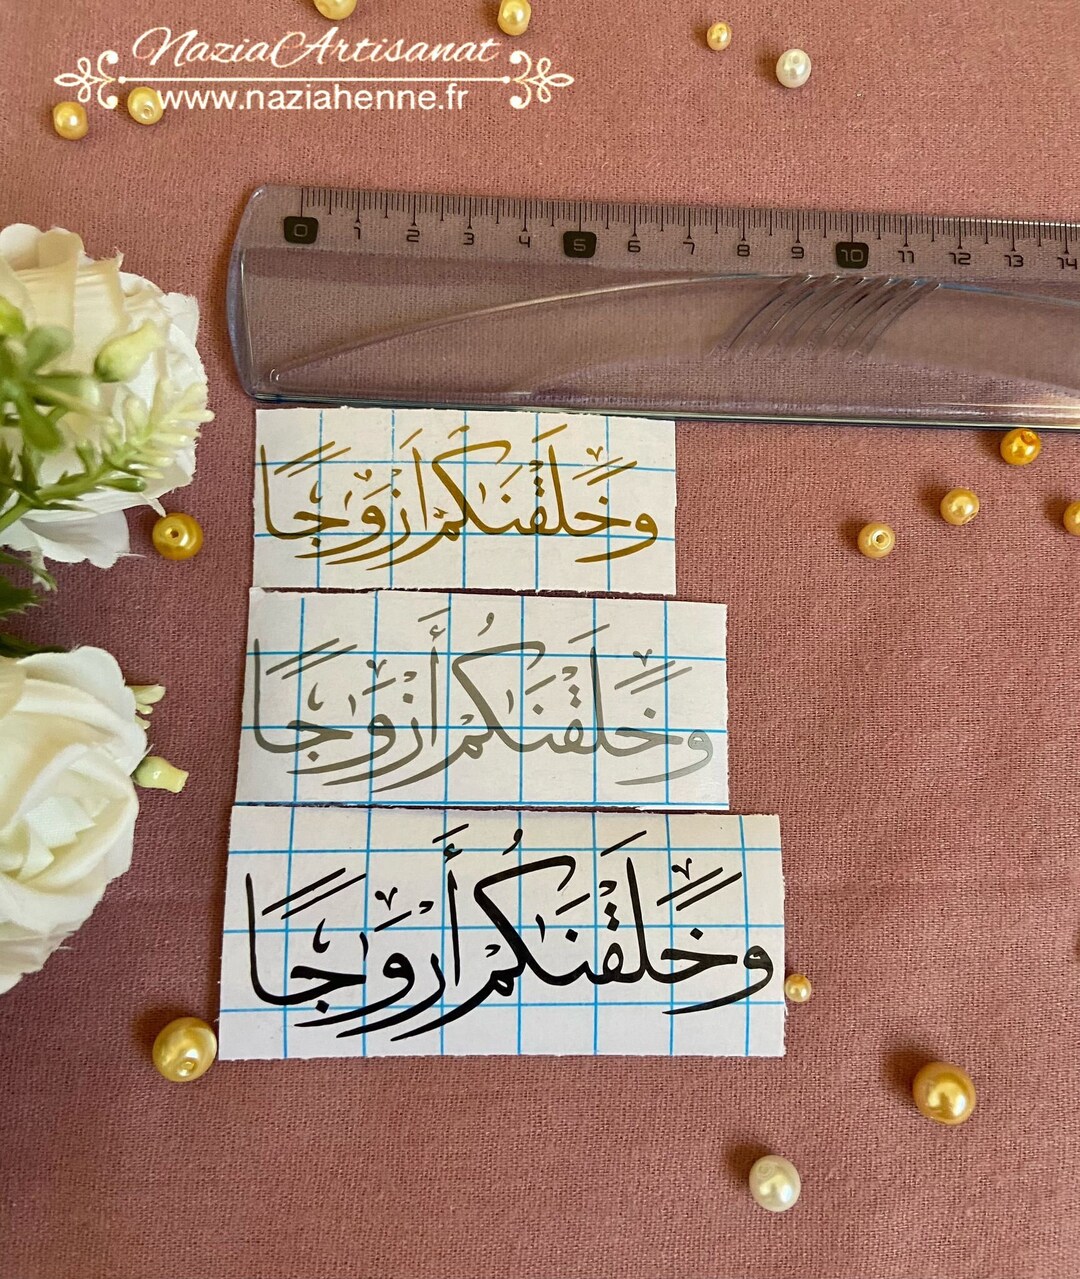 NaziaArtisanat
www.naziahenne.fr
0 1 2 3 4 5 6 7 8 9 10 11 12 13 14
وخَلَقْنَٰكمْ اَزْوَٰجًا
وخَلَقْنَٰكُمْ أَزْوَٰجًا
وخَلَقْنَٰكُمْ أَرْوَٰجًا